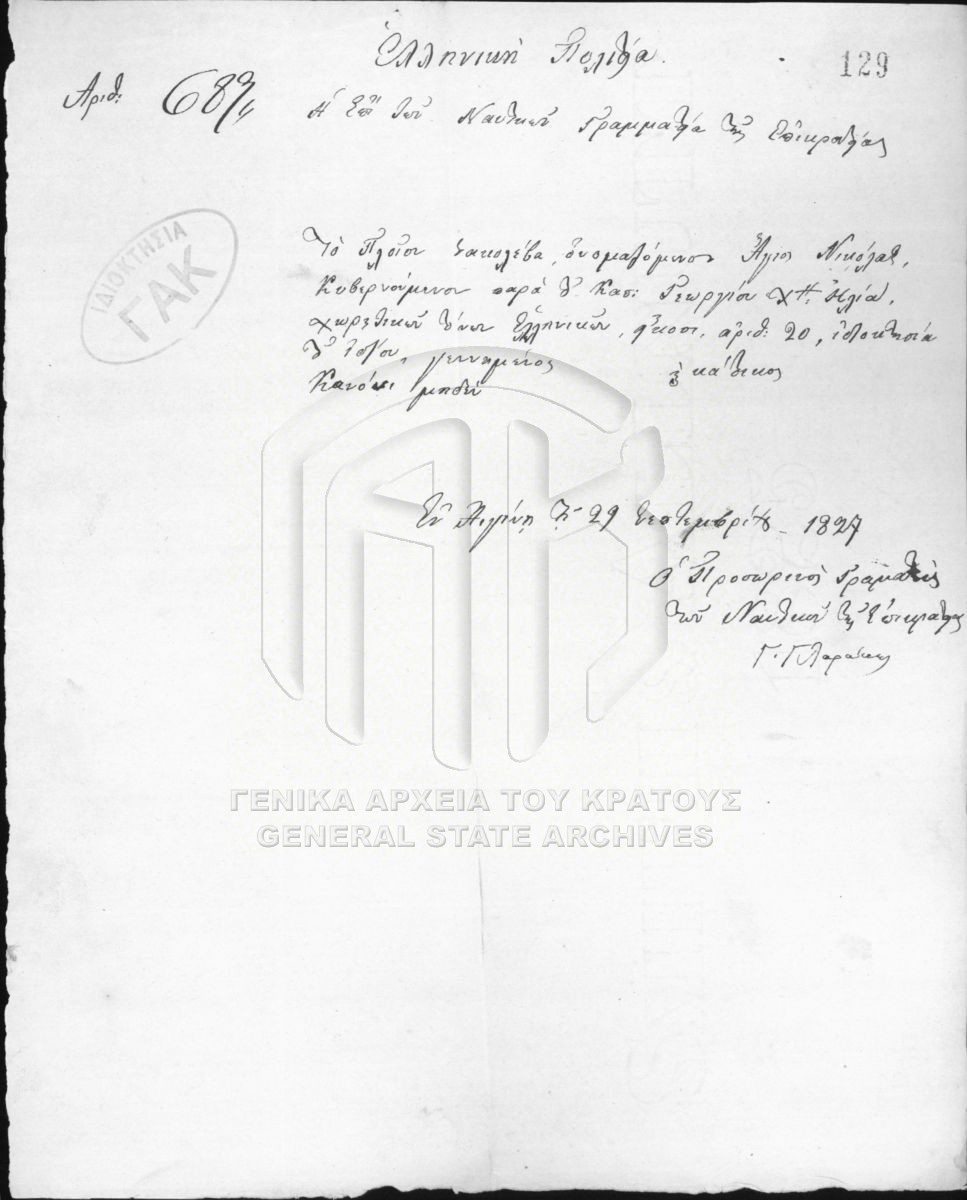 Ἑλληνικὴ Πολιτεία.
129
Ἀριθ:
Ἡ Ἐπὶ τῶν Ναυτικῶν Γραμματεία τῆς Ἐπικρατείας
ΙΔΙΟΚΤΗΣΙΑ
ΓΑΚ
Τὸ Πλοῖον σακολέβα, ὀνομαζόμενον Ἅγιος Νικόλαος,
Κυβερνούμενον παρὰ τοῦ Καπ: Γεωργίου Χ΄΄ Ἠλία,
χωρητικὸν τόνων Ἑλληνικῶν, εἴκοσι, ἀριθ: 20, ἰδιοκτησία
τοῦ ἰδίου, γεννημένος κάτοικος
Κανόνι μηδέν
Ἐν Αἰγίνῃ τῇ 29 Σεπτεμβρίου 1827
Ὁ Προσωρινὸς Γραμματεὺς
τῶν Ναυτικῶν τῆς Ἐπικρατείας
Γ. Γλαράκης
ΓΕΝΙΚΑ ΑΡΧΕΙΑ ΤΟΥ ΚΡΑΤΟΥΣ
GENERAL STATE ARCHIVES